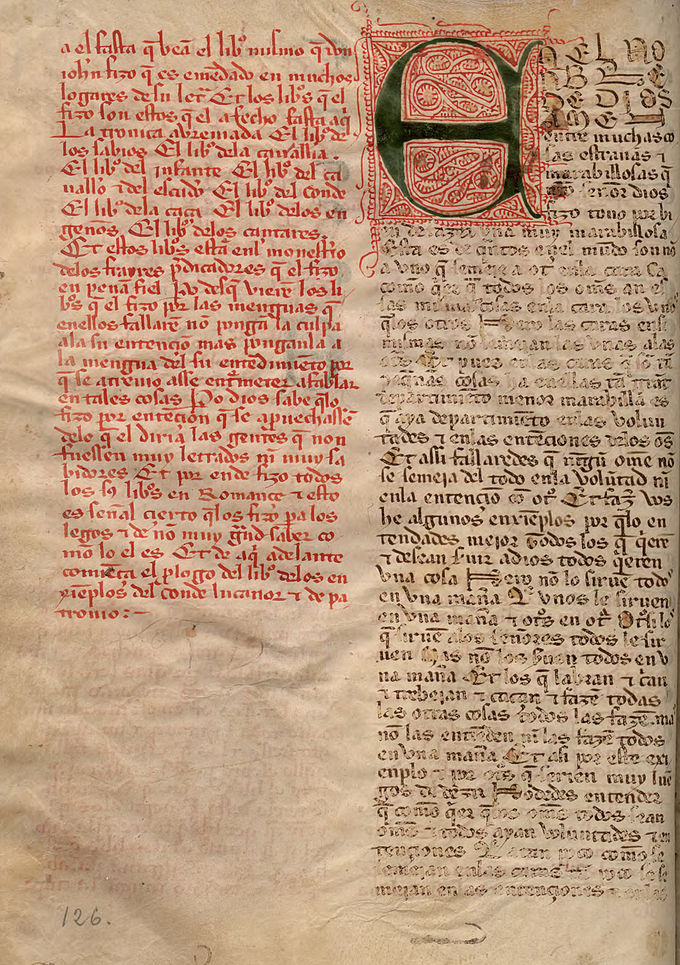 a el fasta q̄ vea̅ el lib° mismo q̄ don
joh̅n fizo q̄ es eme̅dado en muchos
logares de su let̃ Et los lib°s q̄ el
fizo son estos q̄ el a fecho fasta aq̃
La cronica abreuiada El lib° de
los sabios El lib° dela caualł̃ia.
El lib° del Infante El lib° del ca
uallo 𐌉 del escud̃o El lib° del conde
El lib° dela caça El lib° delos en
geños El lib° delos cantares.
Et estos lib°s esta̅ enl̃ monest̃io
delos frayres p̃dicadores q̄ el fizo
en pen̄a fiel P̃o desq̃ viere̅ los li
b°s q̄ el fizo por las menguas q̄
enellos fallare̅ no̅ pongā la culpa
ala su ente̅cio̅ mas ponganla a
la mengua del su ente̅dimie̅to por
q̄ se atreuio asse ent̃meter afablar
en tales cosas P̃o dios sabe q̃lo
fizo por ente̅cio̅n q̄ se ap̃uechasse̅
delo q̄ el diria las gentes q̄ non
fuessen muy letrados nj̅ muy sa
bidores Et por ende fizo todos
los sus lib°s en Romance 𐌉 esto
es señal cierto q̃los fizo pa los
legos 𐌉 de no̅ muy g̃nd saber co
mo lo el es Et de aq̃ adelante
comie̅ça el p̃logo del lib° delos en
xie̅plos del conde lucanor 𐌉 de pa
tronio:
E
entre muchas co
sas estrañas 𐌉
marabillosas q̄
señor dios
fizo touo por bi
en de fazer vna muy marabillosa
Esta es de q̃ntos enel mu̅do son no̅
a vno q̄ semeje a ot° enla cara Ca
como q̃er q̄ todos los om̄s an es
sas mismas cosas enla cara los vnos
q̄los otros Pero las caras en si
mismas no̅ semejan las vnas alas
ot̃s Et pues enlas caras q̄ so̅ ta̅
peq̃nas cosas ha enellas ta̅ g̃nt
departimie̅to menor marabilla es
q̄ aya departimie̅to enlas volun
tades 𐌉 enlas ente̅ciones delos om̄s
Et assi fallaredes q̄ ningu̅ om̄e no̅
se semeja del todo enla volu̅tad ni
enla ente̅cio̅ co̅ ot° Et faz̃ vos
he algunos enxie̅plos por q̃lo en
tendades mejor Todos los q̄ q̃ere̅
𐌉 desean s̃uir adios todos q̃eren
vna cosa Pero no̅ lo sirue̅ todos
en vna man̄a Q̃ vnos le siruen
en vna man̄a 𐌉 ot°s en ot̃ Ot̃si los
q̄ sirue̅ alos señores todos le sir
uen Mas no̅ los siruen todos en v
na man̄a Et los q̄ labran 𐌉 c̃an
𐌉 trebejan 𐌉 caçan 𐌉 faze̅ todas
las otras cosas todos las faze̅ mas
no̅ las entie̅den nj̅ las faze̅ todos
en vna man̄a Et asi por este exi
enplo 𐌉 por ot°s q̄ serien muy lue
gos de dezir Podedes entender
q̄ como q̃er q̃los om̄s todos sean
om̄s 𐌉 todos ayan voluntades 𐌉 en
tenciones Q̃ atan poco como se
semejan enlas caras tan poco se se
mejan en las entenciones 𐌉 enlas
126.